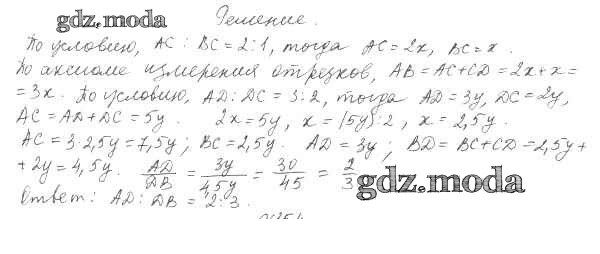 gdz.moda Решение.
По условию, AC : BC = 2:1, тогда AC = 2x, BC = x.
По аксиоме измерения отрезков, AB = AC + CD = 2x + x =
= 3x. По условию, AD : DC = 3:2, тогда AD = 3y, DC = 2y,
AC = AD + DC = 5y. 2x = 5y, x = (5y) : 2, x = 2,5y.
AC = 3·2,5y = 7,5y; BC = 2,5y. AD = 3y; BD = BC + CD = 2,5y +
+ 2y = 4,5y. AD/DB = 3y/4,5y = 30/45 = 2/3 gdz.moda
Ответ: AD : DB = 2:3.